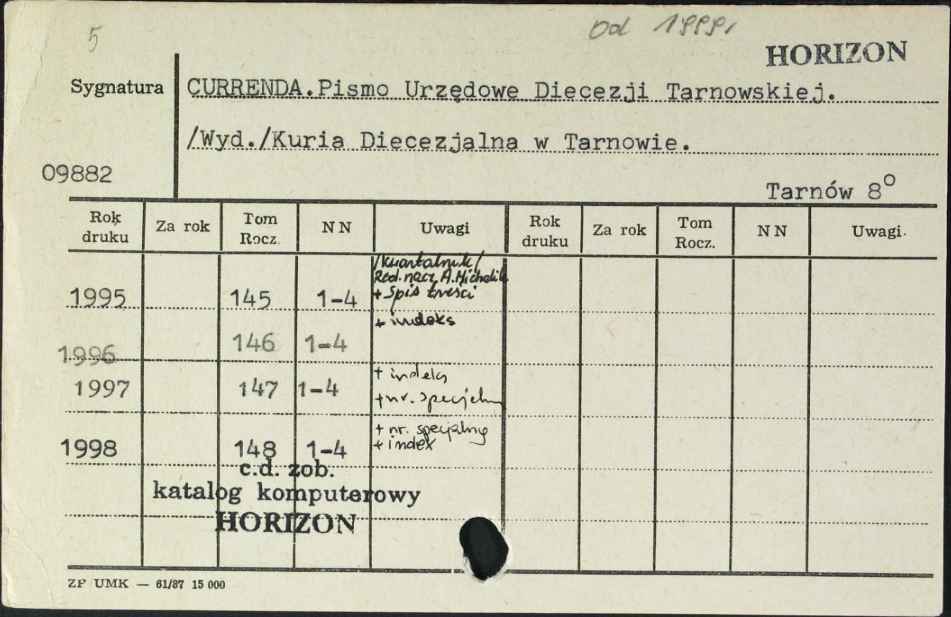 5
Od 1999r
HORIZON
Sygnatura
CURRENDA.Pismo Urzędowe Diecezji Tarnowskiej.
/Wyd./Kuria Diecezjalna w Tarnowie.
09882
Tarnów 8°
Rok druku Za rok Tom Rocz. NN Uwagi Rok druku Za rok Tom Rocz. NN Uwagi.
/kwartalnik/
Red. nacz. A. Michalik
1995 145 1-4 + Spis treści
+ indeks
1996 146 1-4
+ indeks
1997 147 1-4 + nr. specjalny
+ nr. specjalny
1998 148 1-4 + index
c.d. zob.
katalog komputerowy
HORIZON
ZP UMK — 61/87 15 000